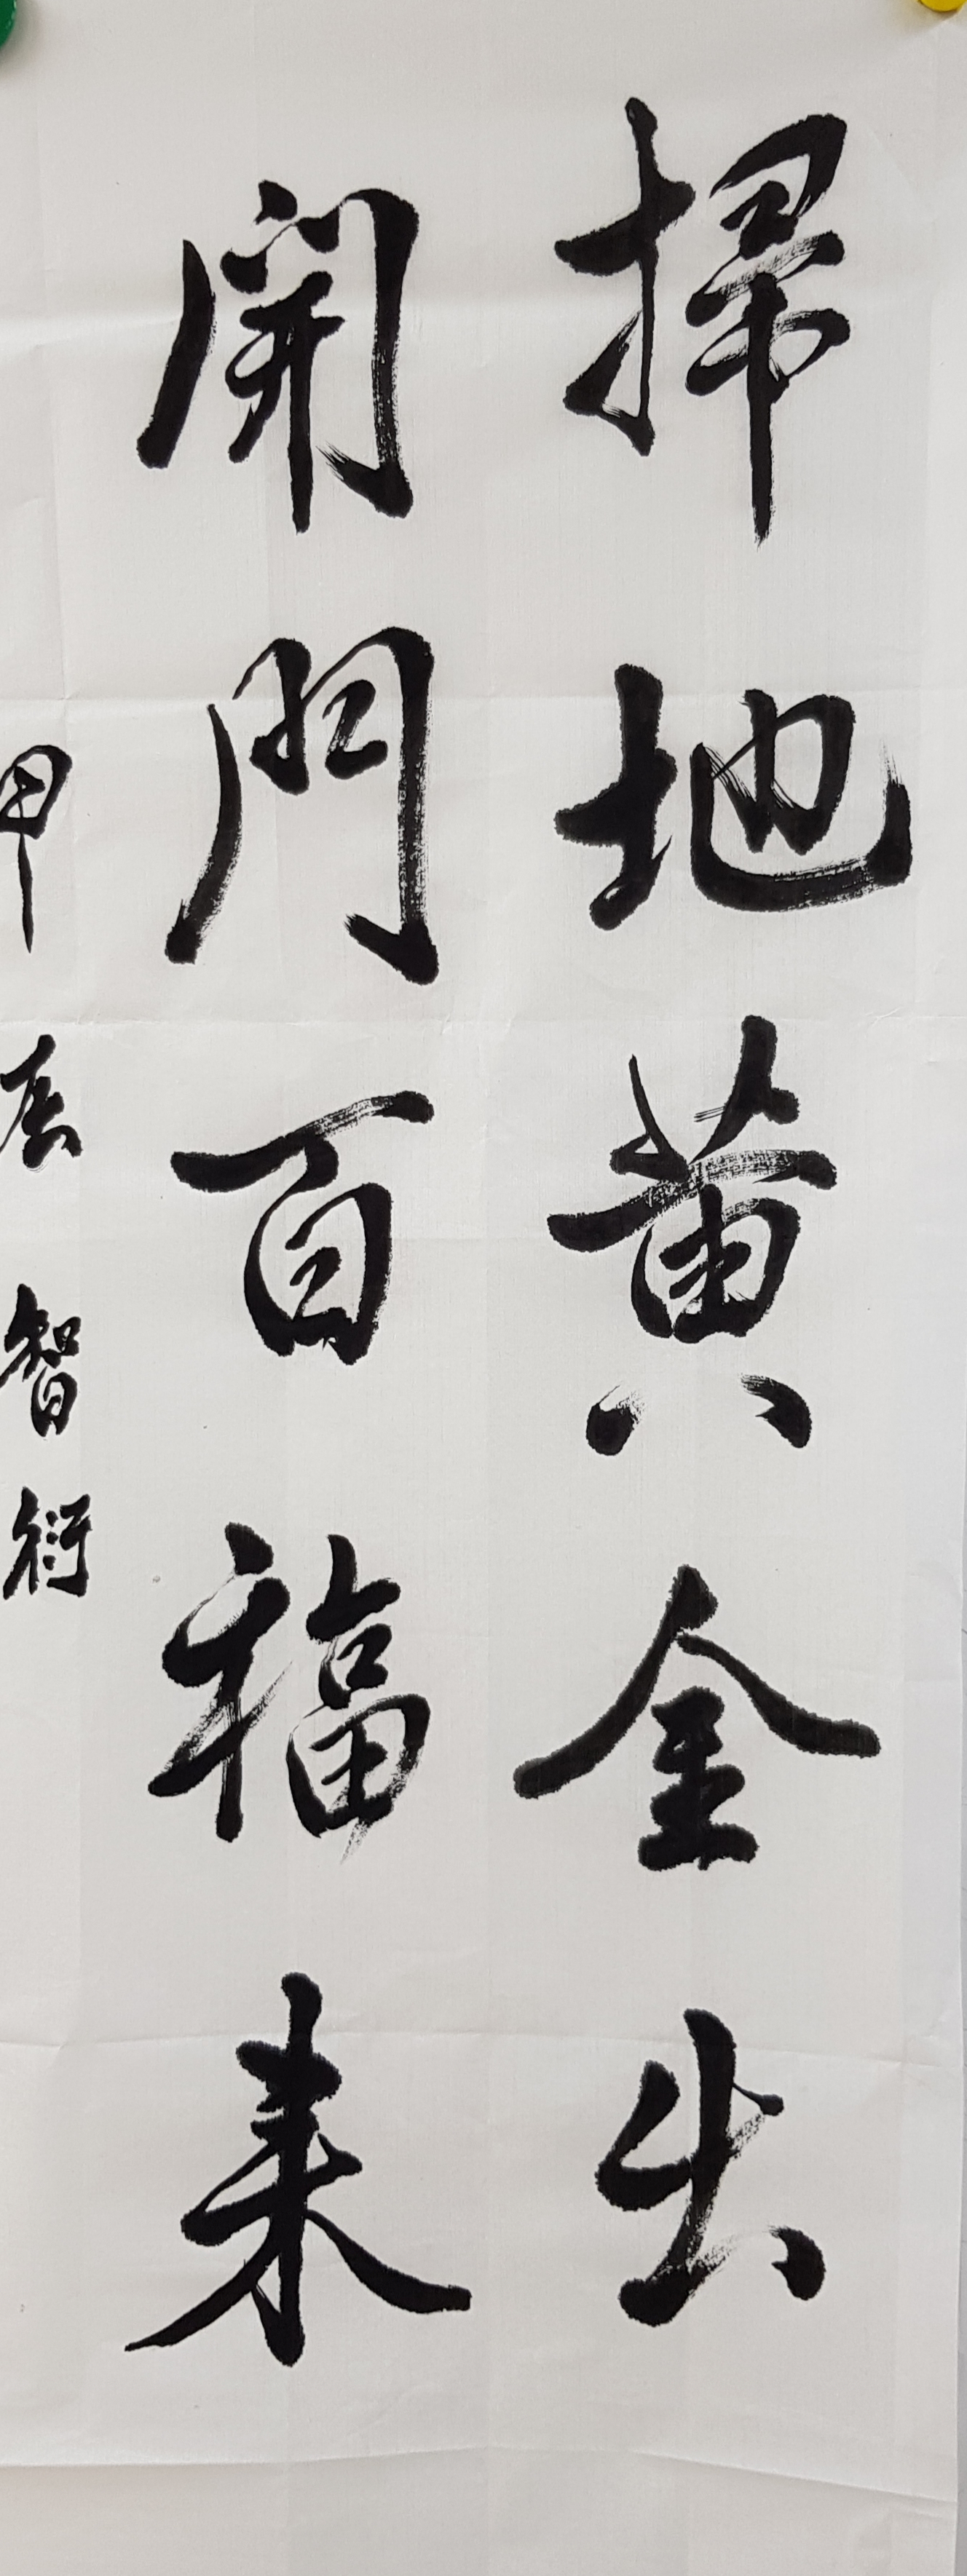 掃地黄金出
開門百福来
甲辰智衍